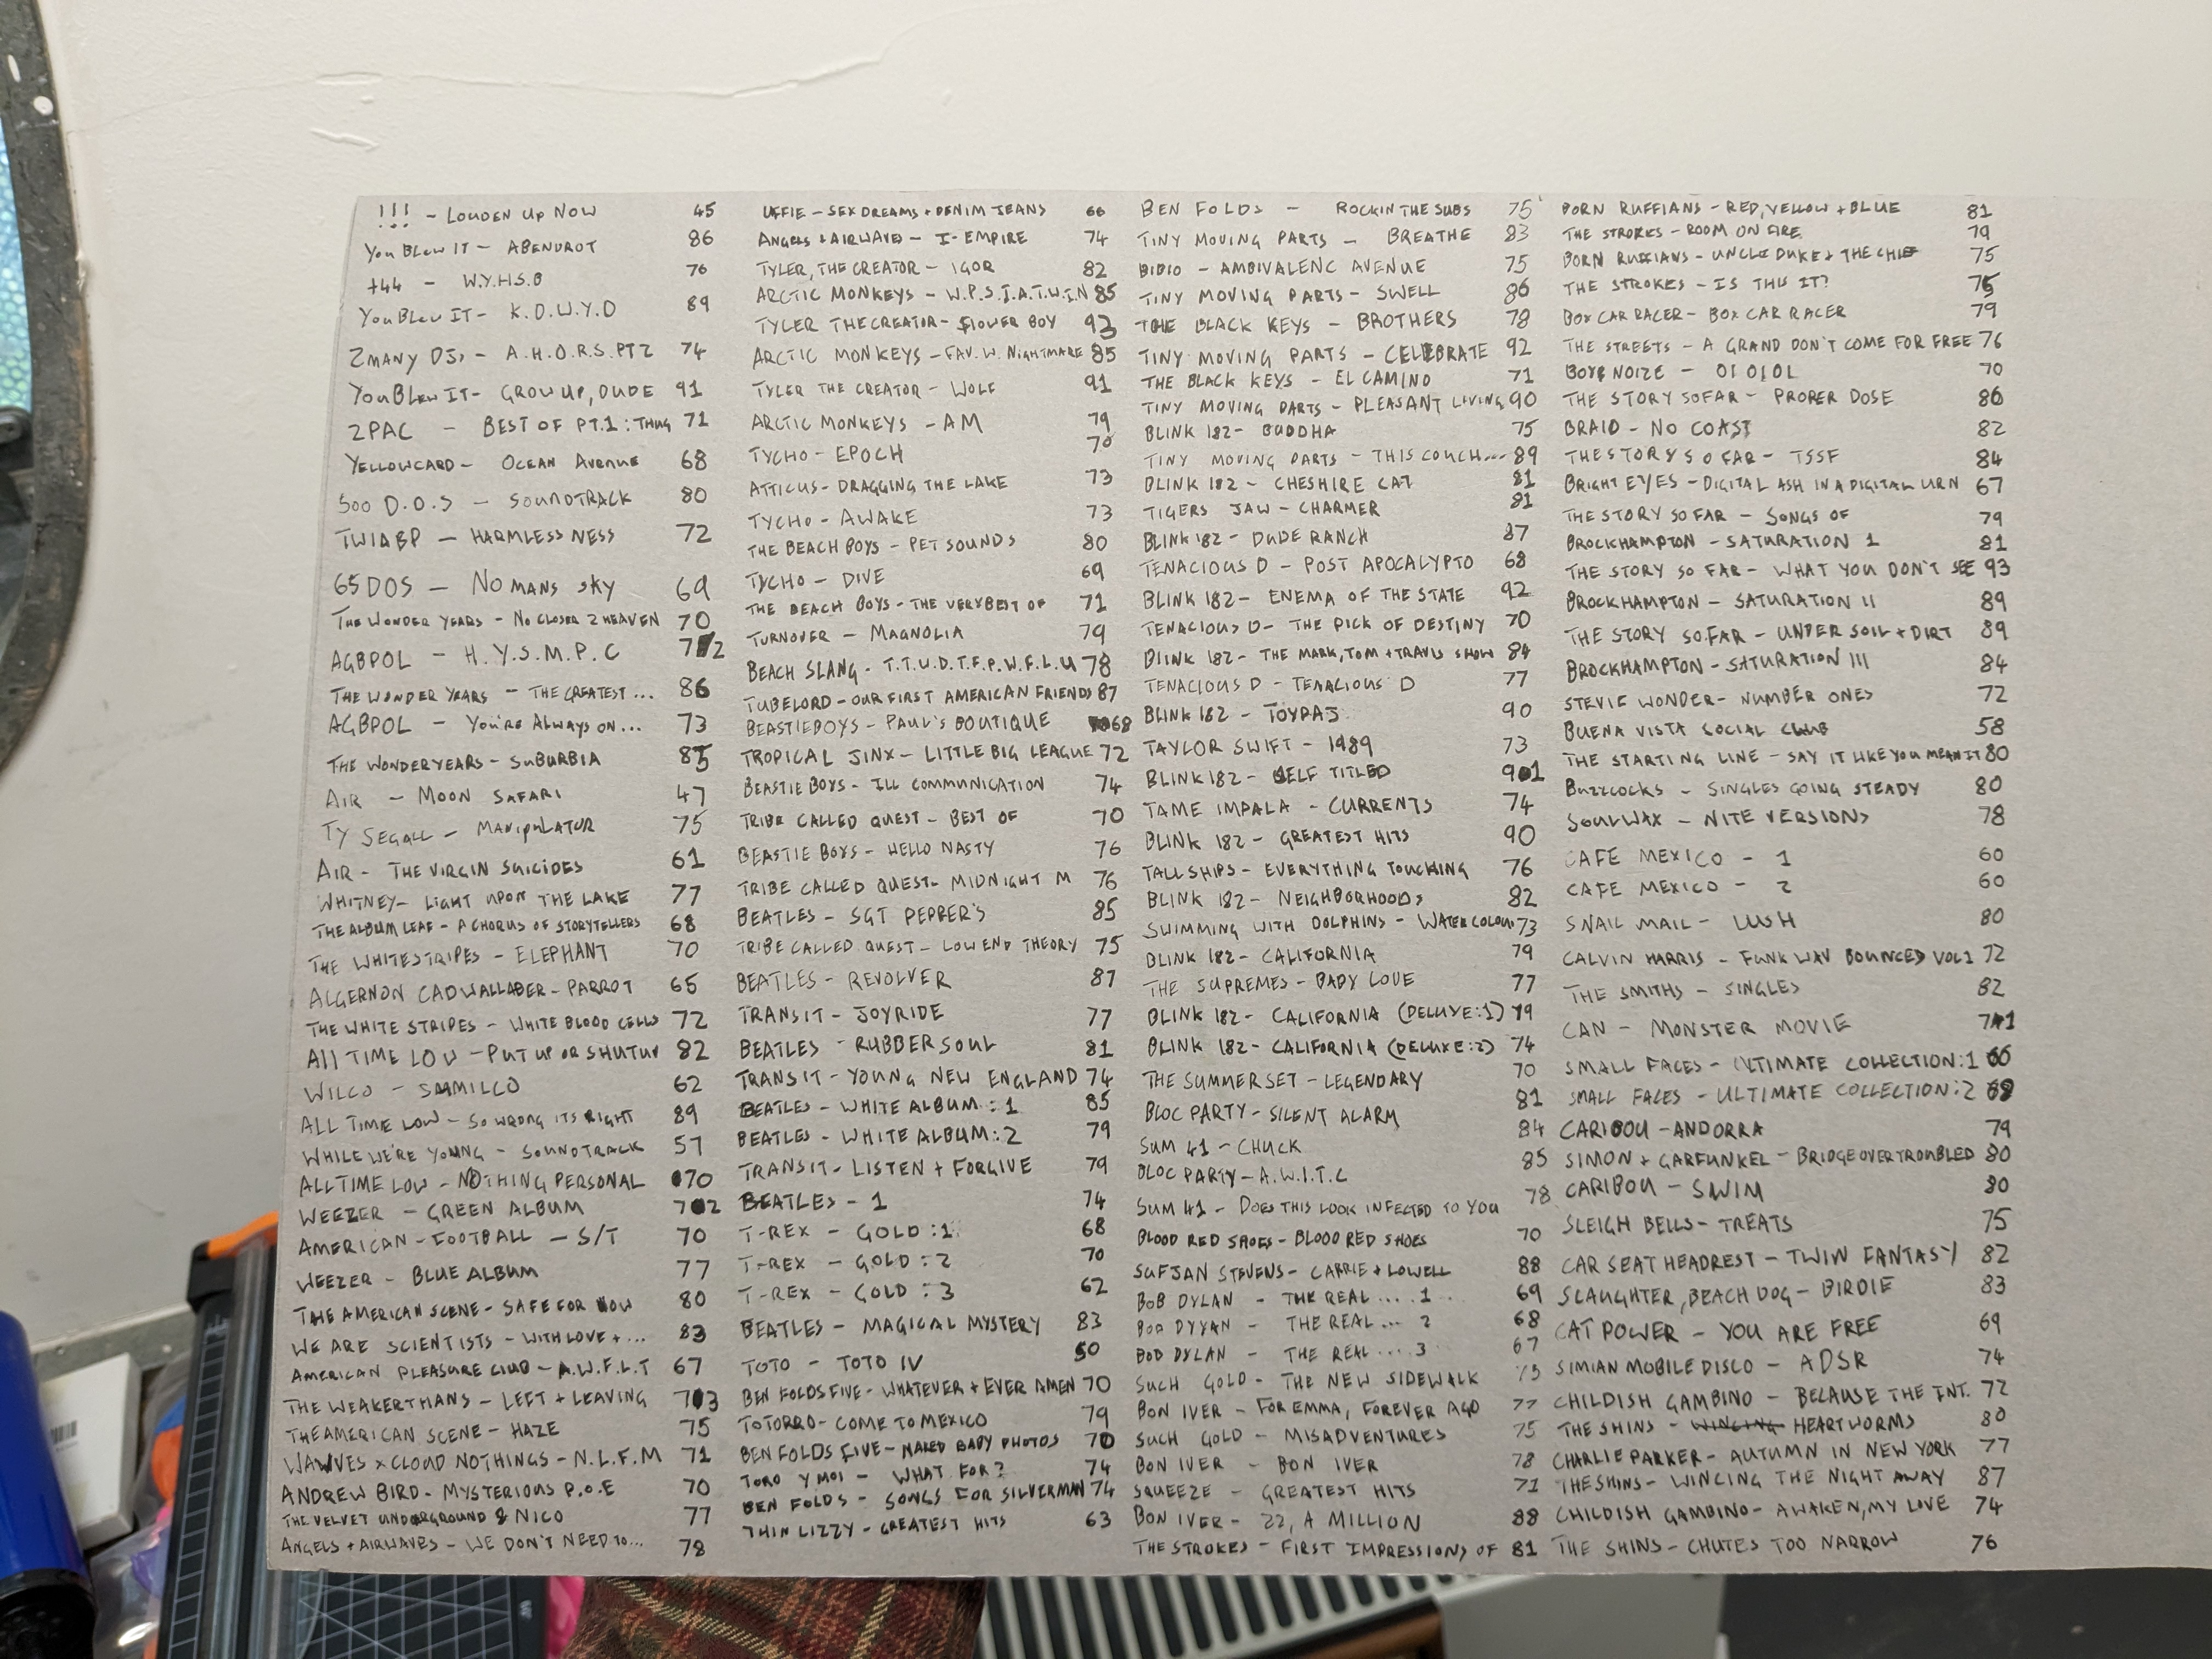 !!! - LOUDEN UP NOW 45
YOU BLEW IT - ABENDROT 86
+44 - W.Y.H.S.B 76
YOU BLEW IT - K.D.W.Y.D 89
2MANY DJs - A.H.O.R.S. PT 2 74
YOU BLEW IT - GROW UP, DUDE 91
2PAC - BEST OF PT.1: THUG 71
YELLOWCARD - OCEAN AVENUE 68
500 D.O.S - SOUNDTRACK 80
TWIABP - HARMLESSNESS 72
65DOS - NO MANS SKY 69
THE WONDER YEARS - NO CLOSER 2 HEAVEN 70
AGBPOL - H.Y.S.M.P.C 72
THE WONDER YEARS - THE GREATEST... 86
AGBPOL - YOU'RE ALWAYS ON... 73
THE WONDERYEARS - SUBURBIA 85
AIR - MOON SAFARI 47
TY SEGALL - MANIPULATOR 75
AIR - THE VIRGIN SUICIDES 61
WHITNEY - LIGHT UPON THE LAKE 77
THE ALBUM LEAF - A CHORUS OF STORYTELLERS 68
THE WHITESTRIPES - ELEPHANT 70
ALGERNON CADWALLADER - PARROT 65
THE WHITE STRIPES - WHITE BLOOD CELLS 72
ALL TIME LOW - PUT UP OR SHUTUP 82
WILCO - SHMILCO 62
ALL TIME LOW - SO WRONG ITS RIGHT 89
WHILE WE'RE YOUNG - SOUNDTRACK 57
ALL TIME LOW - NOTHING PERSONAL 70
WEEZER - GREEN ALBUM 72
AMERICAN - FOOTBALL - S/T 70
WEEZER - BLUE ALBUM 77
THE AMERICAN SCENE - SAFE FOR NOW 80
WE ARE SCIENTISTS - WITH LOVE + ... 83
AMERICAN PLEASURE CLUB - A.W.F.L.T 67
THE WEAKERTHANS - LEFT + LEAVING 73
THE AMERICAN SCENE - HAZE 75
WAVVES x CLOUD NOTHINGS - N.L.F.M 71
ANDREW BIRD - MYSTERIOUS P.O.E 70
THE VELVET UNDERGROUND & NICO 77
ANGELS + AIRWAVES - WE DON'T NEED TO... 78
UFFIE - SEX DREAMS + DENIM JEANS 66
ANGELS + AIRWAVES - I-EMPIRE 74
TYLER, THE CREATOR - IGOR 82
ARCTIC MONKEYS - W.P.S.I.A.T.W.I.N 85
TYLER THE CREATOR - FLOWER BOY 93
ARCTIC MONKEYS - FAV. W. NIGHTMARE 85
TYLER THE CREATOR - WOLF 91
ARCTIC MONKEYS - AM 79
TYCHO - EPOCH 70
ATTICUS - DRAGGING THE LAKE 73
TYCHO - AWAKE 73
THE BEACH BOYS - PET SOUNDS 80
TYCHO - DIVE 69
THE BEACH BOYS - THE VERY BEST OF 71
TURNOVER - MAGNOLIA 79
BEACH SLANG - T.T.U.D.T.F.P.W.F.L.U 78
TUBELORD - OUR FIRST AMERICAN FRIENDS 87
BEASTIEBOYS - PAUL'S BOUTIQUE 68
TROPICAL JINX - LITTLE BIG LEAGUE 72
BEASTIE BOYS - ILL COMMUNICATION 74
TRIBE CALLED QUEST - BEST OF 70
BEASTIE BOYS - HELLO NASTY 76
TRIBE CALLED QUEST - MIDNIGHT M 76
BEATLES - SGT PEPPER'S 85
TRIBE CALLED QUEST - LOW END THEORY 75
BEATLES - REVOLVER 87
TRANSIT - JOYRIDE 77
BEATLES - RUBBER SOUL 81
TRANSIT - YOUNG NEW ENGLAND 74
BEATLES - WHITE ALBUM : 1 85
BEATLES - WHITE ALBUM : 2 79
TRANSIT - LISTEN + FORGIVE 79
BEATLES - 1 74
T-REX - GOLD : 1 68
T-REX - GOLD : 2 70
T-REX - GOLD : 3 62
BEATLES - MAGICAL MYSTERY 83
TOTO - TOTO IV 50
BEN FOLDS FIVE - WHATEVER + EVER AMEN 70
TOTORRO - COME TO MEXICO 79
BEN FOLDS FIVE - NAKED BABY PHOTOS 70
TORO Y MOI - WHAT FOR? 74
BEN FOLDS - SONGS FOR SILVERMAN 74
THIN LIZZY - GREATEST HITS 63
BEN FOLDS - ROCKIN THE SUBS 75
TINY MOVING PARTS - BREATHE 83
BIBIO - AMBIVALENC AVENUE 75
TINY MOVING PARTS - SWELL 86
THE BLACK KEYS - BROTHERS 78
TINY MOVING PARTS - CELEBRATE 92
THE BLACK KEYS - EL CAMINO 71
TINY MOVING PARTS - PLEASANT LIVING 90
BLINK 182 - BUDDHA 75
TINY MOVING PARTS - THIS COUCH... 89
BLINK 182 - CHESHIRE CAT 81
TIGERS JAW - CHARMER 81
BLINK 182 - DUDE RANCH 87
TENACIOUS D - POST APOCALYPTO 68
BLINK 182 - ENEMA OF THE STATE 92
TENACIOUS D - THE PICK OF DESTINY 70
BLINK 182 - THE MARK, TOM + TRAVIS SHOW 84
TENACIOUS D - TENACIOUS D 77
BLINK 182 - TOYPAJ 90
TAYLOR SWIFT - 1989 73
BLINK 182 - SELF TITLED 91
TAME IMPALA - CURRENTS 74
BLINK 182 - GREATEST HITS 90
TALL SHIPS - EVERYTHING TOUCHING 76
BLINK 182 - NEIGHBORHOODS 82
SWIMMING WITH DOLPHINS - WATER COLOUR 73
BLINK 182 - CALIFORNIA 79
THE SUPREMES - BABY LOVE 77
BLINK 182 - CALIFORNIA (DELUXE:1) 79
BLINK 182 - CALIFORNIA (DELUXE:2) 74
THE SUMMER SET - LEGENDARY 70
BLOC PARTY - SILENT ALARM 81
SUM 41 - CHUCK 84
BLOC PARTY - A.W.I.T.C 85
SUM 41 - DOES THIS LOOK INFECTED TO YOU 78
BLOOD RED SHOES - BLOOD RED SHOES 70
SUFJAN STEVENS - CARRIE + LOWELL 88
BOB DYLAN - THE REAL .... 1 69
BOB DYYAN - THE REAL ... 2 68
BOB DYLAN - THE REAL .... 3 67
SUCH GOLD - THE NEW SIDEWALK 75
BON IVER - FOR EMMA, FOREVER AGO 77
SUCH GOLD - MISADVENTURES 75
BON IVER - BON IVER 78
SQUEEZE - GREATEST HITS 71
BON IVER - 22, A MILLION 88
THE STROKES - FIRST IMPRESSIONS OF 81
BORN RUFFIANS - RED, YELLOW + BLUE 81
THE STROKES - ROOM ON FIRE 79
BORN RUFFIANS - UNCLE DUKE + THE CHIEF 75
THE STROKES - IS THIS IT? 75
BOX CAR RACER - BOX CAR RACER 79
THE STREETS - A GRAND DON'T COME FOR FREE 76
BOYS NOIZE - OI OI OI 70
THE STORY SO FAR - PROPER DOSE 86
BRAID - NO COAST 82
THE STORY SO FAR - TSSF 84
BRIGHT EYES - DIGITAL ASH IN A DIGITAL URN 67
THE STORY SO FAR - SONGS OF 79
BROCKHAMPTON - SATURATION 1 81
THE STORY SO FAR - WHAT YOU DON'T SEE 93
BROCKHAMPTON - SATURATION II 89
THE STORY SO FAR - UNDER SOIL + DIRT 89
BROCKHAMPTON - SATURATION III 84
STEVIE WONDER - NUMBER ONES 72
BUENA VISTA SOCIAL CLUB 58
THE STARTING LINE - SAY IT LIKE YOU MEAN IT 80
BUZZCOCKS - SINGLES GOING STEADY 80
SOULWAX - NITE VERSIONS 78
CAFE MEXICO - 1 60
CAFE MEXICO - 2 60
SNAIL MAIL - LUSH 80
CALVIN HARRIS - FUNK WAV BOUNCED VOL1 72
THE SMITHS - SINGLES 82
CAN - MONSTER MOVIE 71
SMALL FACES - ULTIMATE COLLECTION:1 66
SMALL FACES - ULTIMATE COLLECTION:2
CARIBOU - ANDORRA 79
SIMON + GARFUNKEL - BRIDGE OVER TROUBLED 80
CARIBOU - SWIM 80
SLEIGH BELLS - TREATS 75
CAR SEAT HEADREST - TWIN FANTASY 82
SLAUGHTER, BEACH DOG - BIRDIE 83
CAT POWER - YOU ARE FREE 69
SIMIAN MOBILE DISCO - ADSR 74
CHILDISH GAMBINO - BECAUSE THE INT. 72
THE SHINS - WINCING HEARTWORMS 80
CHARLIE PARKER - AUTUMN IN NEW YORK 77
THE SHINS - WINCING THE NIGHT AWAY 87
CHILDISH GAMBINO - AWAKEN, MY LOVE 74
THE SHINS - CHUTES TOO NARROW 76